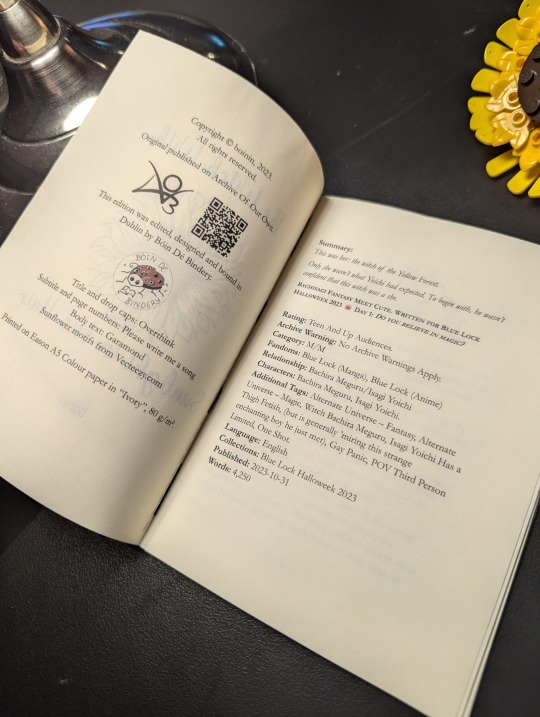 Copyright © boinin, 2023.
All rights reserved.
Original published on Archive Of Our Own.
This edition was edited, designed and bound in
Dublin by Bóin Dé Bindery.
BÓIN DÉ
BINDERY
Title and drop caps: Overthink
Subtitle and page numbers: Please write me a song
Body text: Garamond
Sunflower motifs from Vecteezy.com
Printed on Eason A5 Colour paper in "Ivory", 80 g/m²
Summary:
This was her: the witch of the Yellow Forest.
Only she wasn't what Yoichi had expected. To begin with, he wasn't
confident that this witch was a she.
Bachisagi Fantasy Meet Cute. Written for Blue Lock
Halloweek 2023 Day 1: Do you believe in magic?
Rating: Teen And Up Audiences
Archive Warning: No Archive Warnings Apply.
Category: M/M
Fandoms: Blue Lock (Manga), Blue Lock (Anime)
Relationship: Bachira Meguru/Isagi Yoichi
Characters: Bachira Meguru, Isagi Yoichi.
Additional Tags: Alternate Universe – Fantasy, Alternate
Universe – Magic, Witch Bachira Meguru, Isagi Yoichi Has a
Thigh Fetish, (but is generally 'miring this strange
enchanting boy he just met), Gay Panic, POV Third Person
Limited, One Shot.
Language: English
Collections: Blue Lock Halloweek 2023
Published: 2023-10-31
Words: 4,250